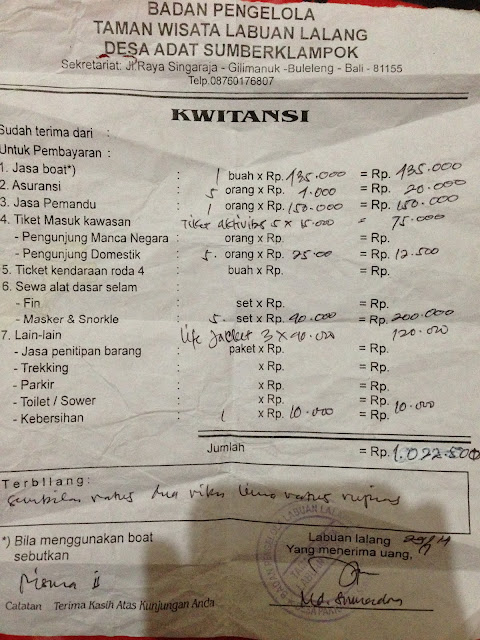 BADAN PENGELOLA
TAMAN WISATA LABUAN LALANG
DESA ADAT SUMBERKLAMPOK
Sekretariat: Jl.Raya Singaraja - Gilimanuk -Buleleng - Bali - 81155
Telp.08760176807
KWITANSI
Sudah terima dari :
Untuk Pembayaran :
1. Jasa boat*) : 1 buah x Rp. 135.000 = Rp. 135.000
2. Asuransi : 5 orang x Rp. 4.000 = Rp. 20.000
3. Jasa Pemandu : 1 orang x Rp. 150.000 = Rp. 150.000
4. Tiket Masuk kawasan Tiket aktivitas 5 x 15.000 = 75.000
- Pengunjung Manca Negara : orang x Rp. = Rp.
- Pengunjung Domestik : 5. orang x Rp. 2500 = Rp. 12.500
5. Ticket kendaraan roda 4 : buah x Rp. = Rp.
6. Sewa alat dasar selam :
- Fin : set x Rp. = Rp.
- Masker & Snorkle : 5. set x Rp. 40.000 = Rp. 200.000
7. Lain-lain life jacket 3 x 40.000 120.000
- Jasa penitipan barang : paket x Rp. = Rp.
- Trekking : x Rp. = Rp.
- Parkir : x Rp. = Rp.
- Toilet / Sower : x Rp. = Rp.
- Kebersihan : 1 x Rp. 10.000 = Rp. 10.000
Jumlah = Rp. 1.022.500
Terbilang:
sembilan ratus dua ribu lima ratus rupias
*) Bila menggunakan boat
sebutkan
Labuan lalang
Yang menerima uang,
Catatan Terima Kasih Atas Kunjungan Anda